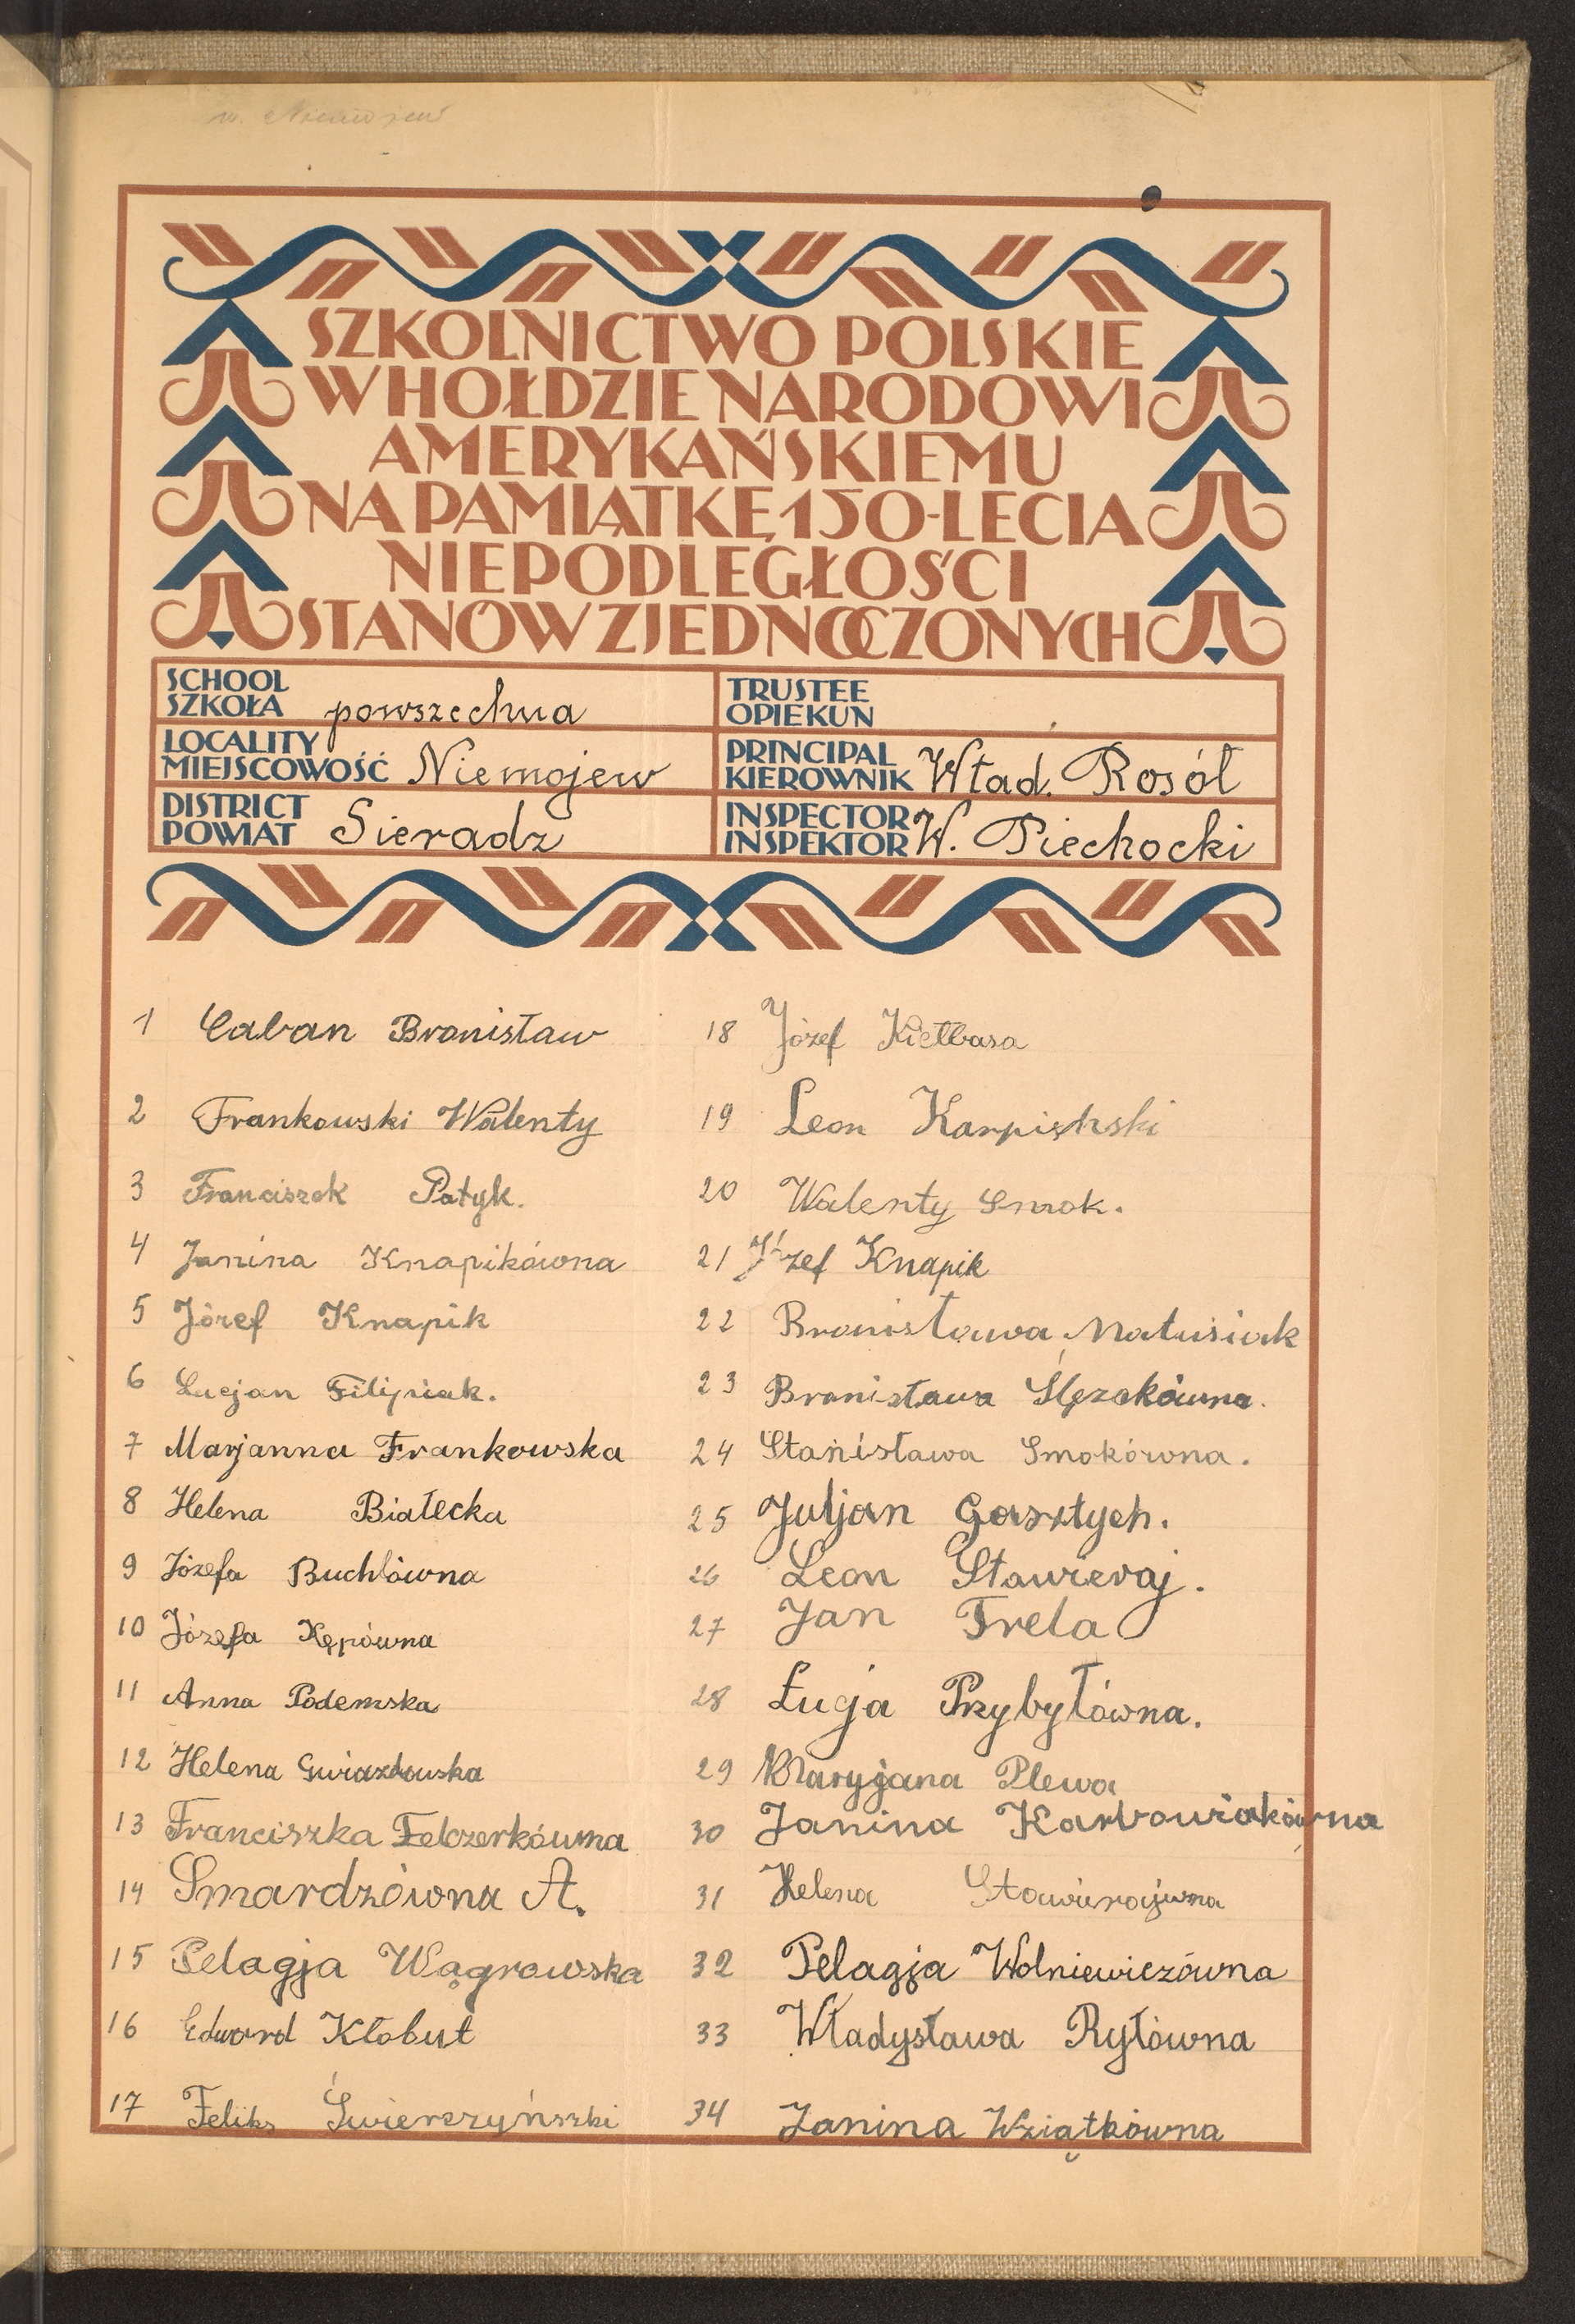 SZKOLNICTWO POLSKIE
W HOŁDZIE NARODOWI
AMERYKAŃSKIEMU
NA PAMIĄTKĘ 150-LECIA
NIEPODLEGŁOŚCI
STANÓW ZJEDNOCZONYCH
SCHOOL
SZKOŁA powszechna
TRUSTEE
OPIEKUN
LOCALITY
MIEJSCOWOŚĆ Niemojew
PRINCIPAL
KIEROWNIK Wład. Rosół
DISTRICT
POWIAT Sieradz
INSPECTOR
INSPEKTOR W. Piechocki
1 Caban Bronisław
2 Frankowski Walenty
3 Franciszek Patyk.
4 Janina Knapikówna
5 Józef Knapik
6 Lucjan Filipiak.
7 Marjanna Frankowska
8 Helena Białecka
9 Józefa Buchlówna
10 Józefa Kępówna
11 Anna Podemska
12 Helena Gwiazdowska
13 Franciszka Felczerkówna
14 Smardzówna A.
15 Pelagja Wągrowska
16 Edward Kłobut
17 Feliks Świerszyński
18 Józef Kiełbasa
19 Leon Karpiński
20 Walenty Smok.
21 Józef Knapik
22 Bronisława Matusiak
23 Bronisława Ślęzakówna.
24 Stanisława Smokówna.
25 Juljan Gasztych.
26 Leon Stawieraj.
27 Jan Trela
28 Łucja Przybyłówna.
29 Maryjana Plewa
30 Janina Karbowiakówna
31 Helena Stawierajówna
32 Pelagja Wolniewiczówna
33 Władysława Ryłówna
34 Janina Wziątkówna